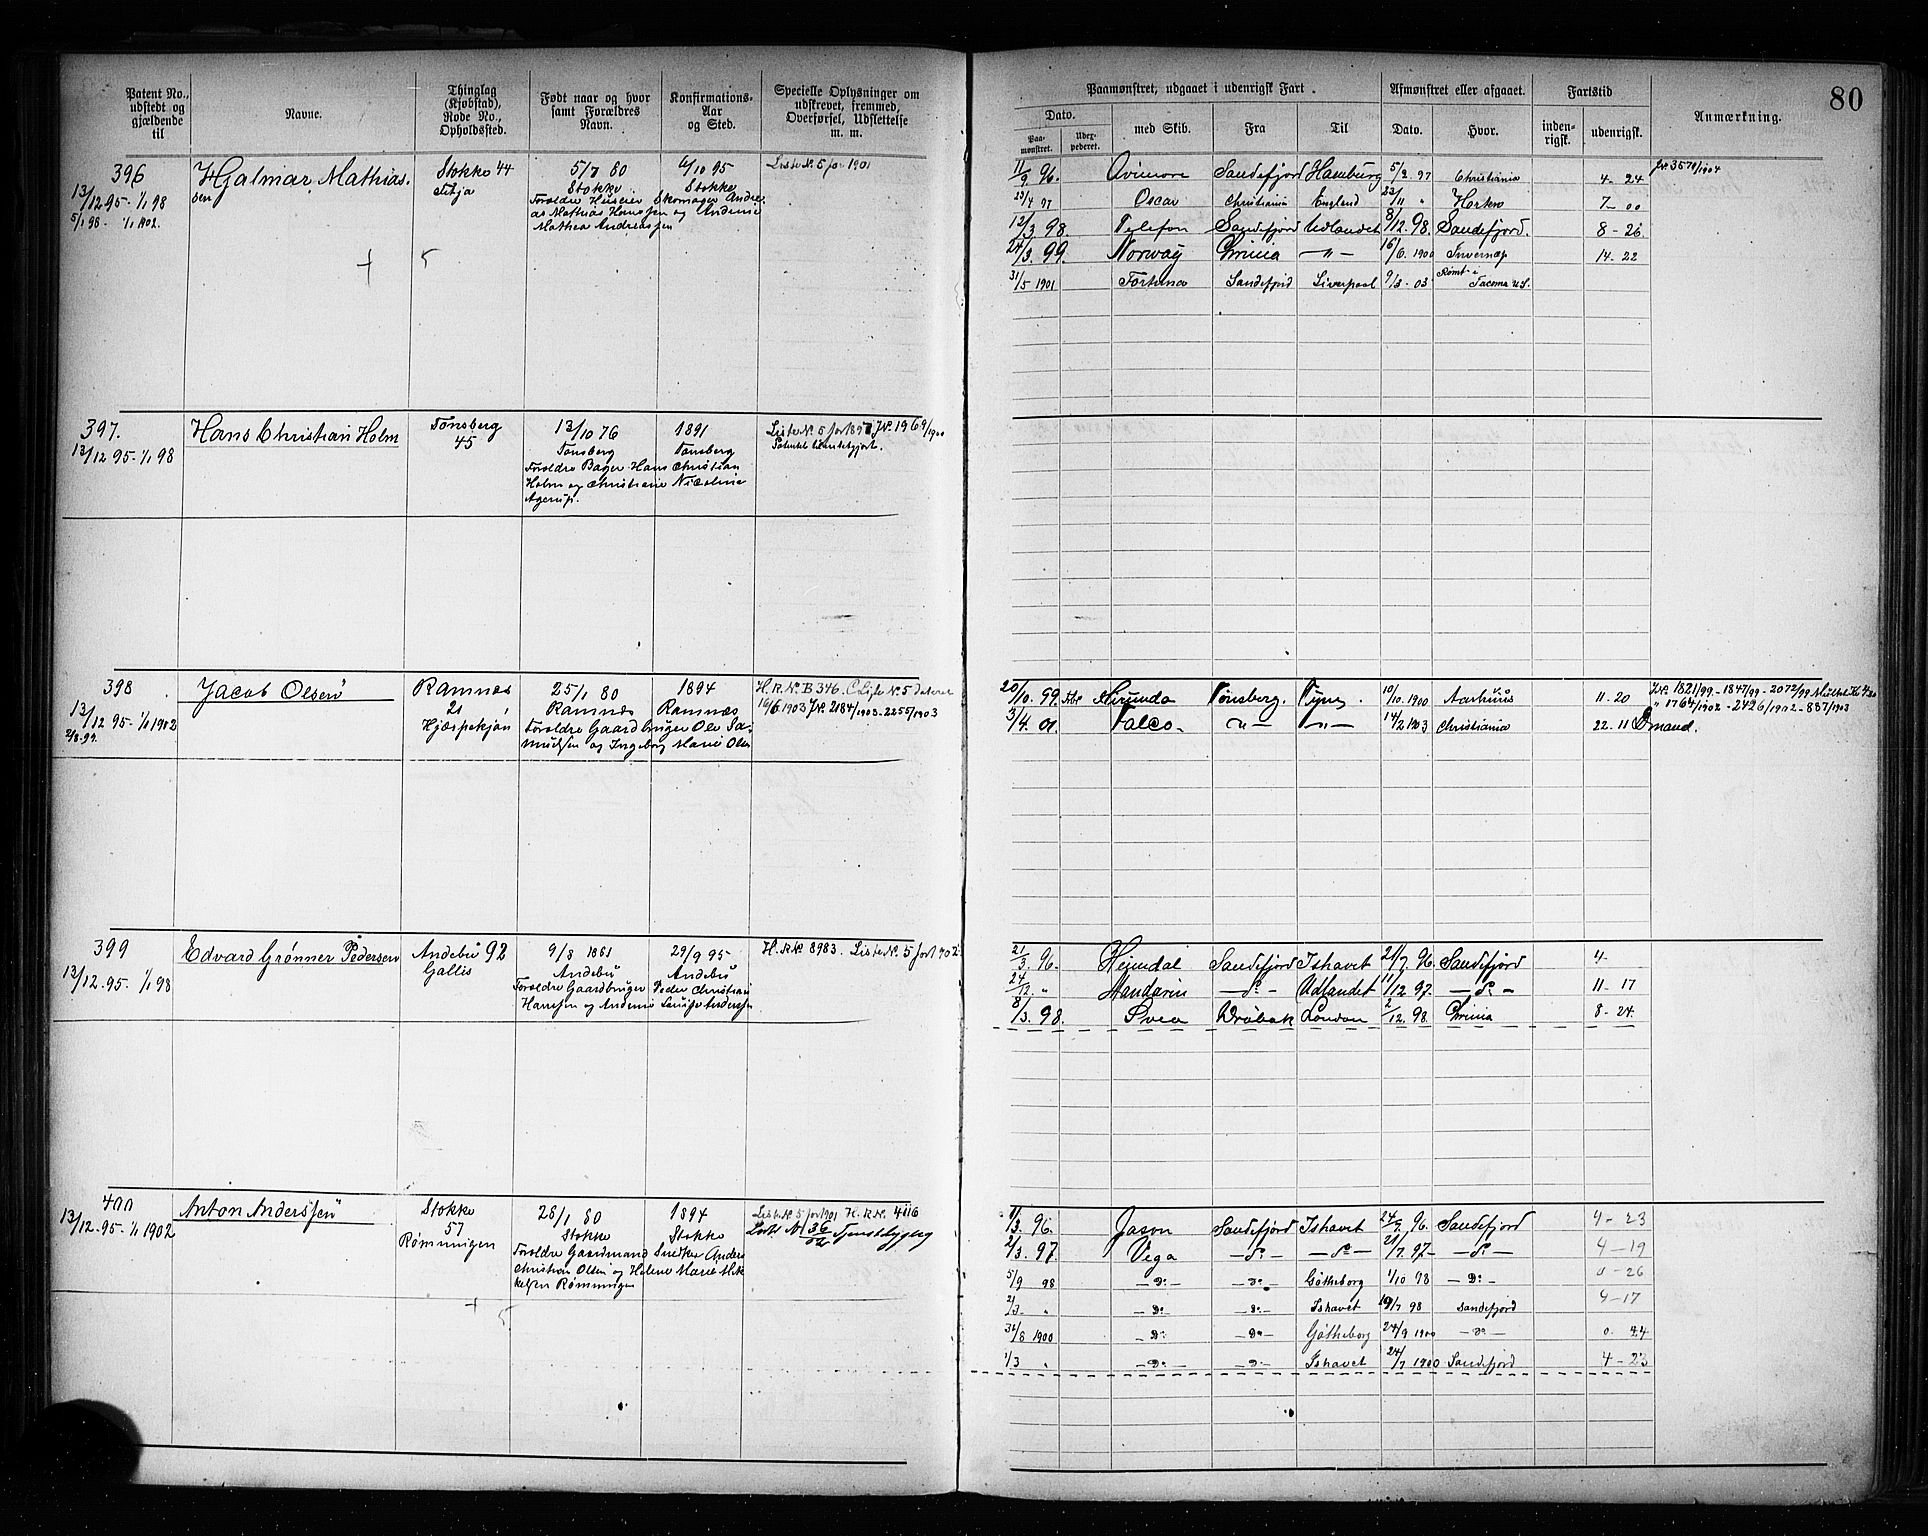 Patent No., udstedt og gjældende til
Navne.
Thinglag (Kjøbstad), Rode No., Opholdssted.
Født naar og hvor samt Forældres Navn.
Konfirmations-Aar og Sted.
Specielle Oplysninger om udskrevet, fremmed, Overførsel, Udslettelse m. m.
Paamønstret, udgaaet i udenrigsk Fart.
Afmønstret eller afgaaet.
Fartstid
Anmærkning.
80
Dato.
Paa-monstret.
med Skib.
Fra
Til
Dato.
Hvor.
inden-rigsk.
udenrigsk.
396
13/12 95 - 1/1 98
5/1 98 - 1/1 1902.
Hjalmar Mathias.
sen
Stokke 44
5/7 80
Stokke
Forældre Huseier Skomager Andre
as Mathias Hanssen og Andrine
Mathea Andreassen
4/10 95
Stokke
Liste No. 5 for 1901
11/9 96. Sandefjord Hamburg 5/2 97 Christiania 4 - 24
Oscar Christiania England 23/11 " 7 - 00
12/3 98. Telefon Sandefjord Udlandet 8/12 98. Sandefjord. 8 - 26.
24/3 99. Norway Grimia - " - 16/6 1900 14 - 22
31/5 1901 Fortuna Sandefjord Liverpool 9/3 - 03 Rømt i Tacoma U.S.
397.
13/12 95 - 1/1 98
Hans Christian Holm
Tønsberg
45
13/10 76
Tønsberg
Forældre Bager Hans Christian
Holm og Christiane Nicoline
Agerup.
1891
Tønsberg
398
13/12 95 - 1/1 1902
2/8 99.
Jacob Olsen
Ramnes
21
25/1 80
Ramnes
Forældre Gaardbruger Ole Sa-
muelsen og Ingeborg Marie Olsen
1894
Ramnes
H.R.No. B 346. Liste No. 5
16/6 1903 J.No. 2184/1903 - 2255/1903
20/10 99. Tønsberg. Tyne. 10/10 1900 Aarhuus 11 - 20
3/4 01. Falco - " - - " - 14/2 1903 Christiania 22 - 11
J.No. 1821/99 - 1847/99 - 2072/99
" 1764/1902 - 2426/1902 - 837/1903
399
13/12 - 95 - 1/1 98
Edvard Grønner Pedersen
Andebu 92
Gallis
9/8 1881
Andebu
Forældre Gaardbruger Peder Christian
Hanssen og Andrine Lovise Anderssen
29/9 95
Andebu
H.R.No. 8983. Liste No. 5 for 1902
21/3 96. Heimdal Sandefjord Ishavet 21/7 96 Sandefjord 4 -
24/12 " Mandarin - do - Udlandet 11/12 97. - do - 11 - 17
8/3 98. Svea Drøbak London 2/12 98. Grimia 8 - 24
400
13/12 - 95 - 1/1 1902
Anton Anderssen
Stokke
57
Rømmingen
28/1 80
Stokke
Forældre Gaardmand Snedker Anders
Christian Olsen og Helene Marie Mik
kelsen Rømmingen
1894
Stokke
Liste No. 5 for 1901 H.R.No. 4116
11/3 96. Jason Sandefjord Ishavet 24/9 96. Sandefjord 4 - 23
2/3 97. Vega - do - - do - 21/7 97 - do - 4 - 19
5/9 98 - do - - do - Gøtheborg 1/10 98 - do - 0 - 26
2/3 " - do - - do - Ishavet 19/7 98 Sandefjord 4 - 17
31/8 1900 - do - - do - Gøtheborg 24/9 1900 - do - 0 24
1/3 " - do - - do - Ishavet 24/7 1900 Sandefjord 4 - 23